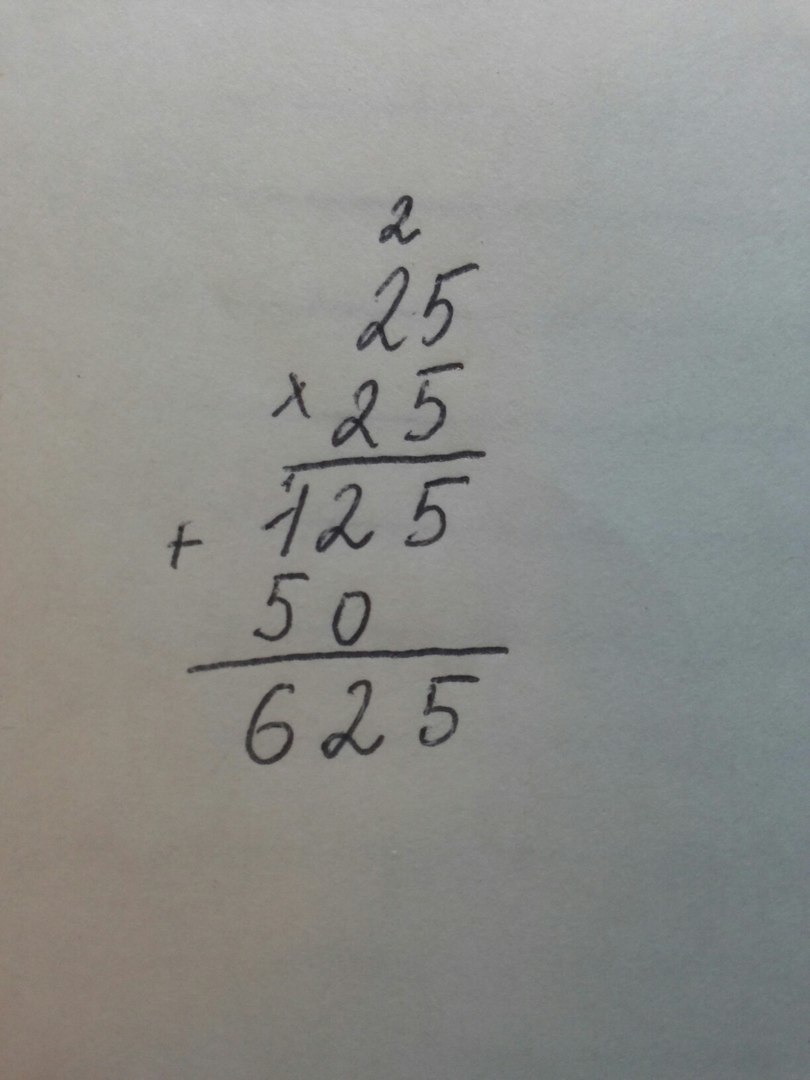 2
25
× 25
125
+
50
625